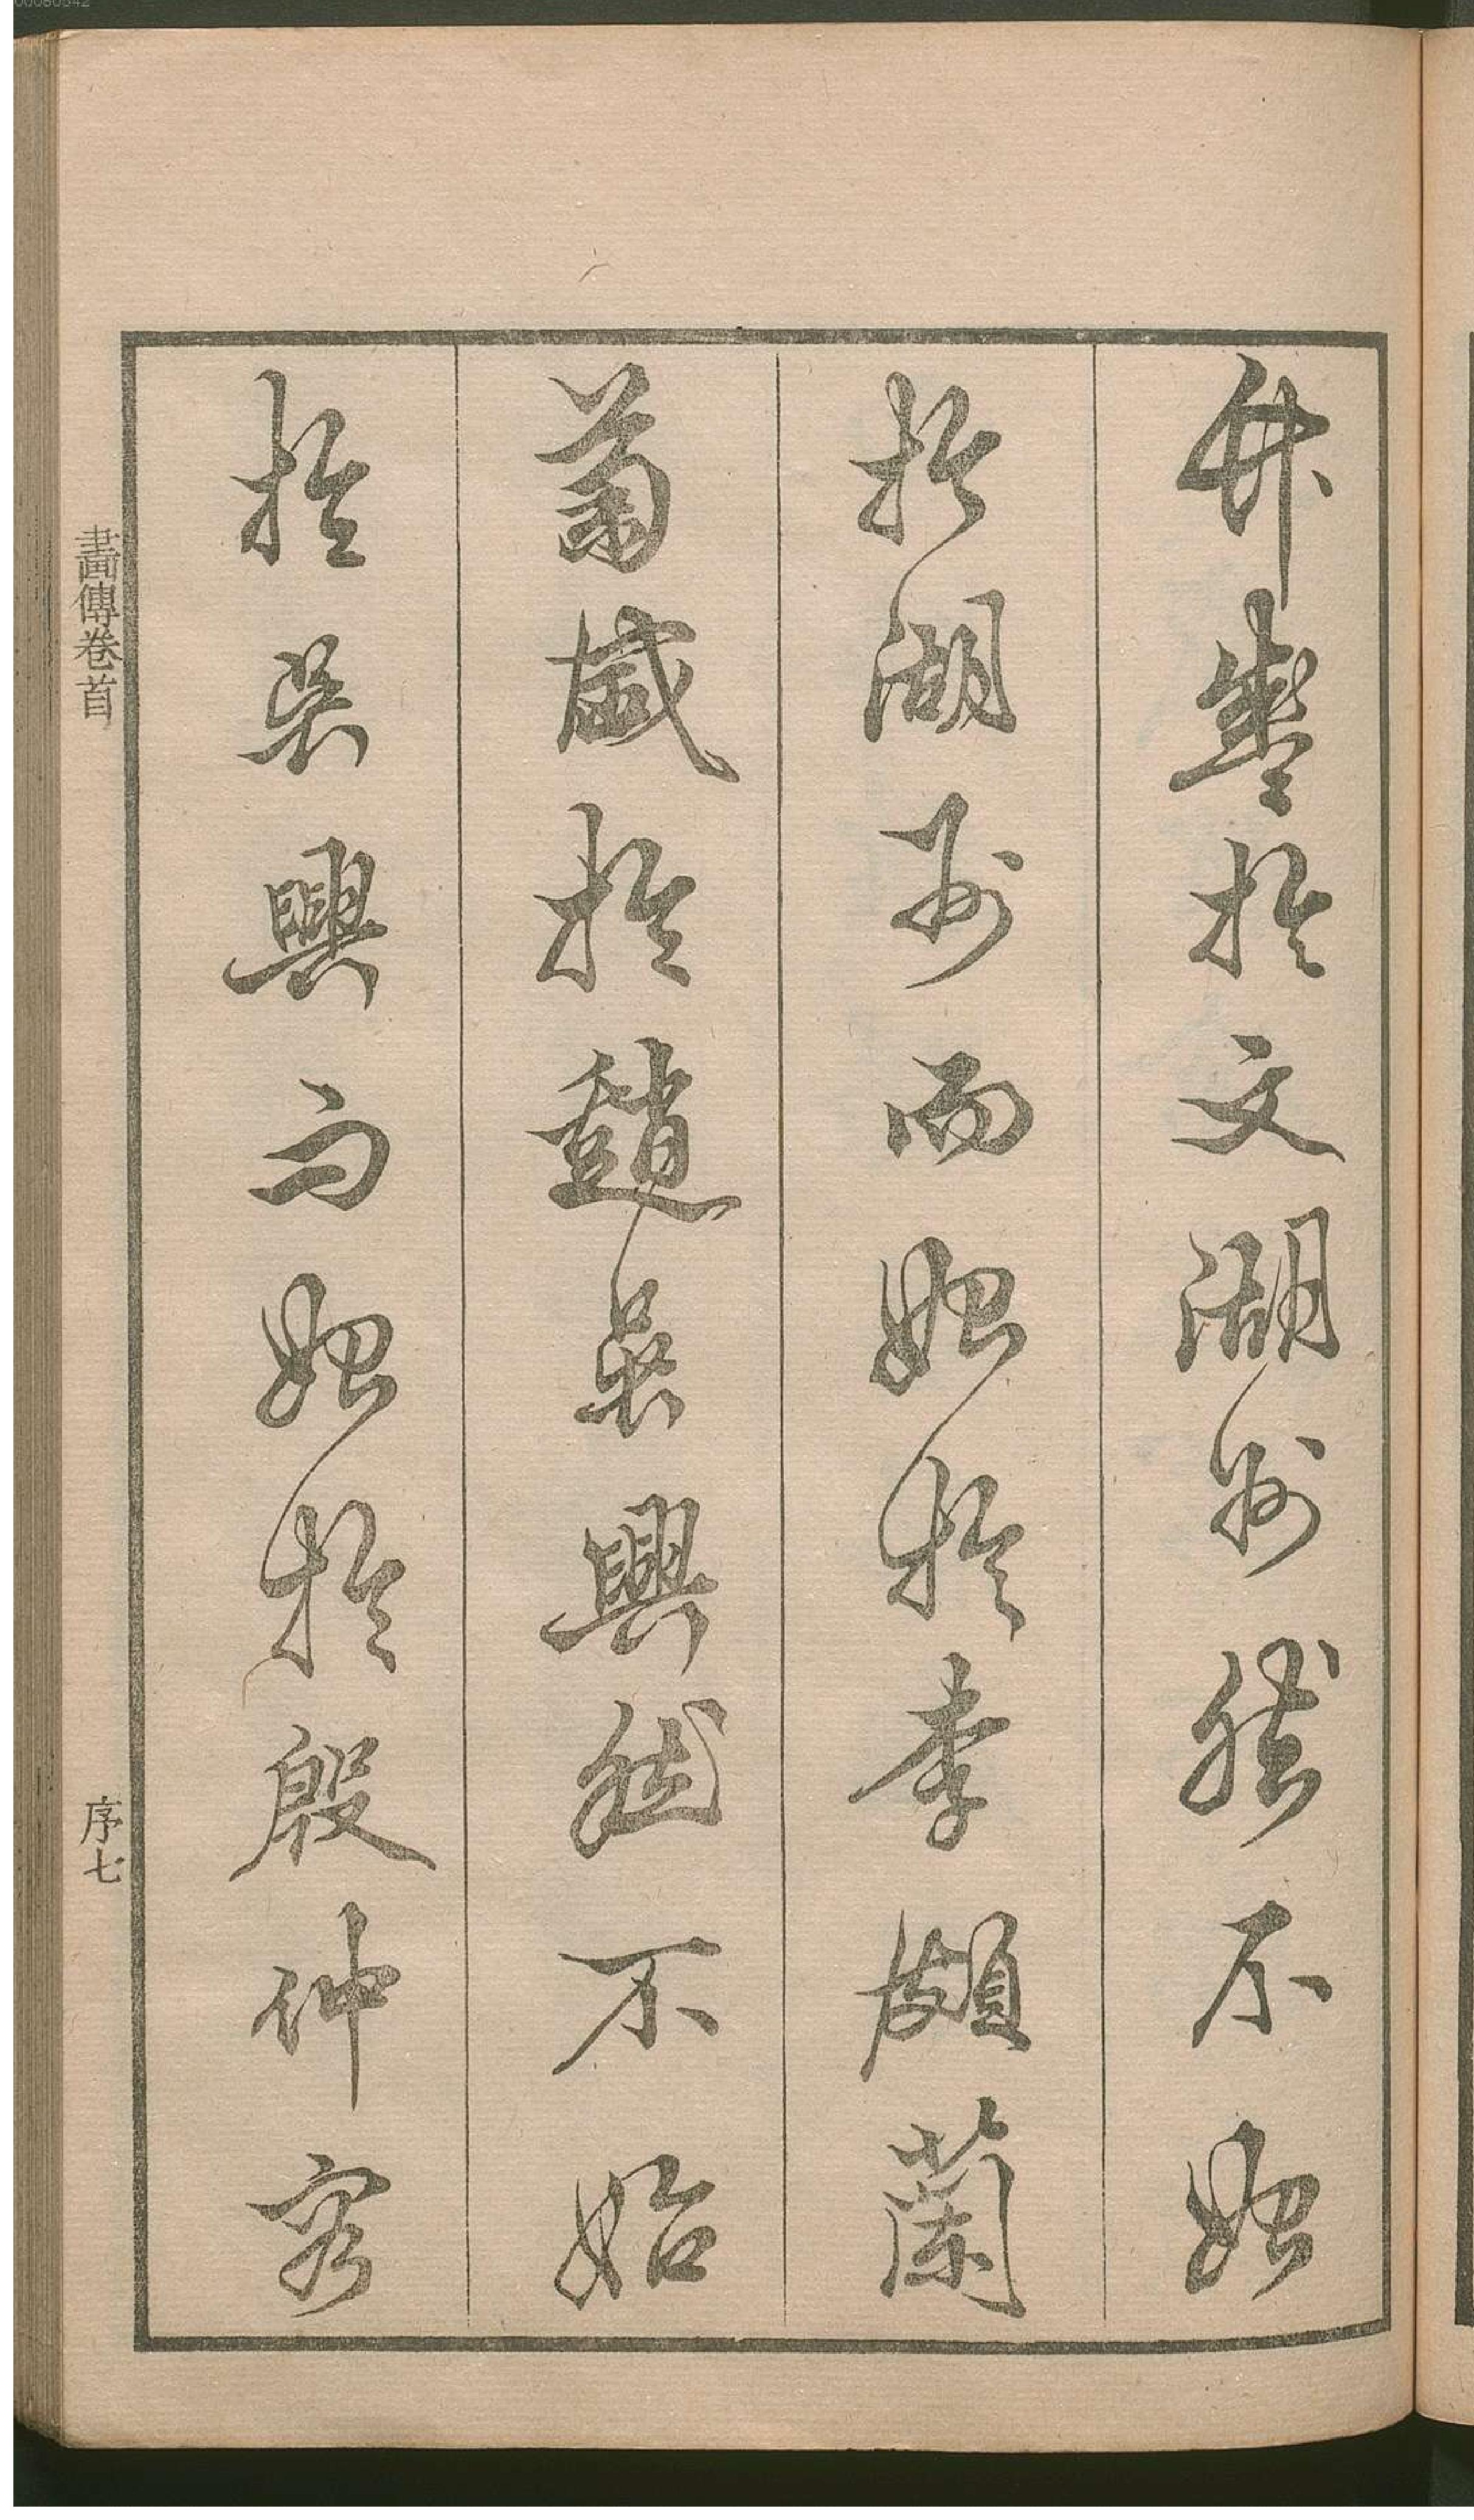 竹盛於文湖州然不始
於湖州而始於李頗蘭
菊盛於趙吳興然不始
於吳興而始於殷仲容
畫傳卷首
序七